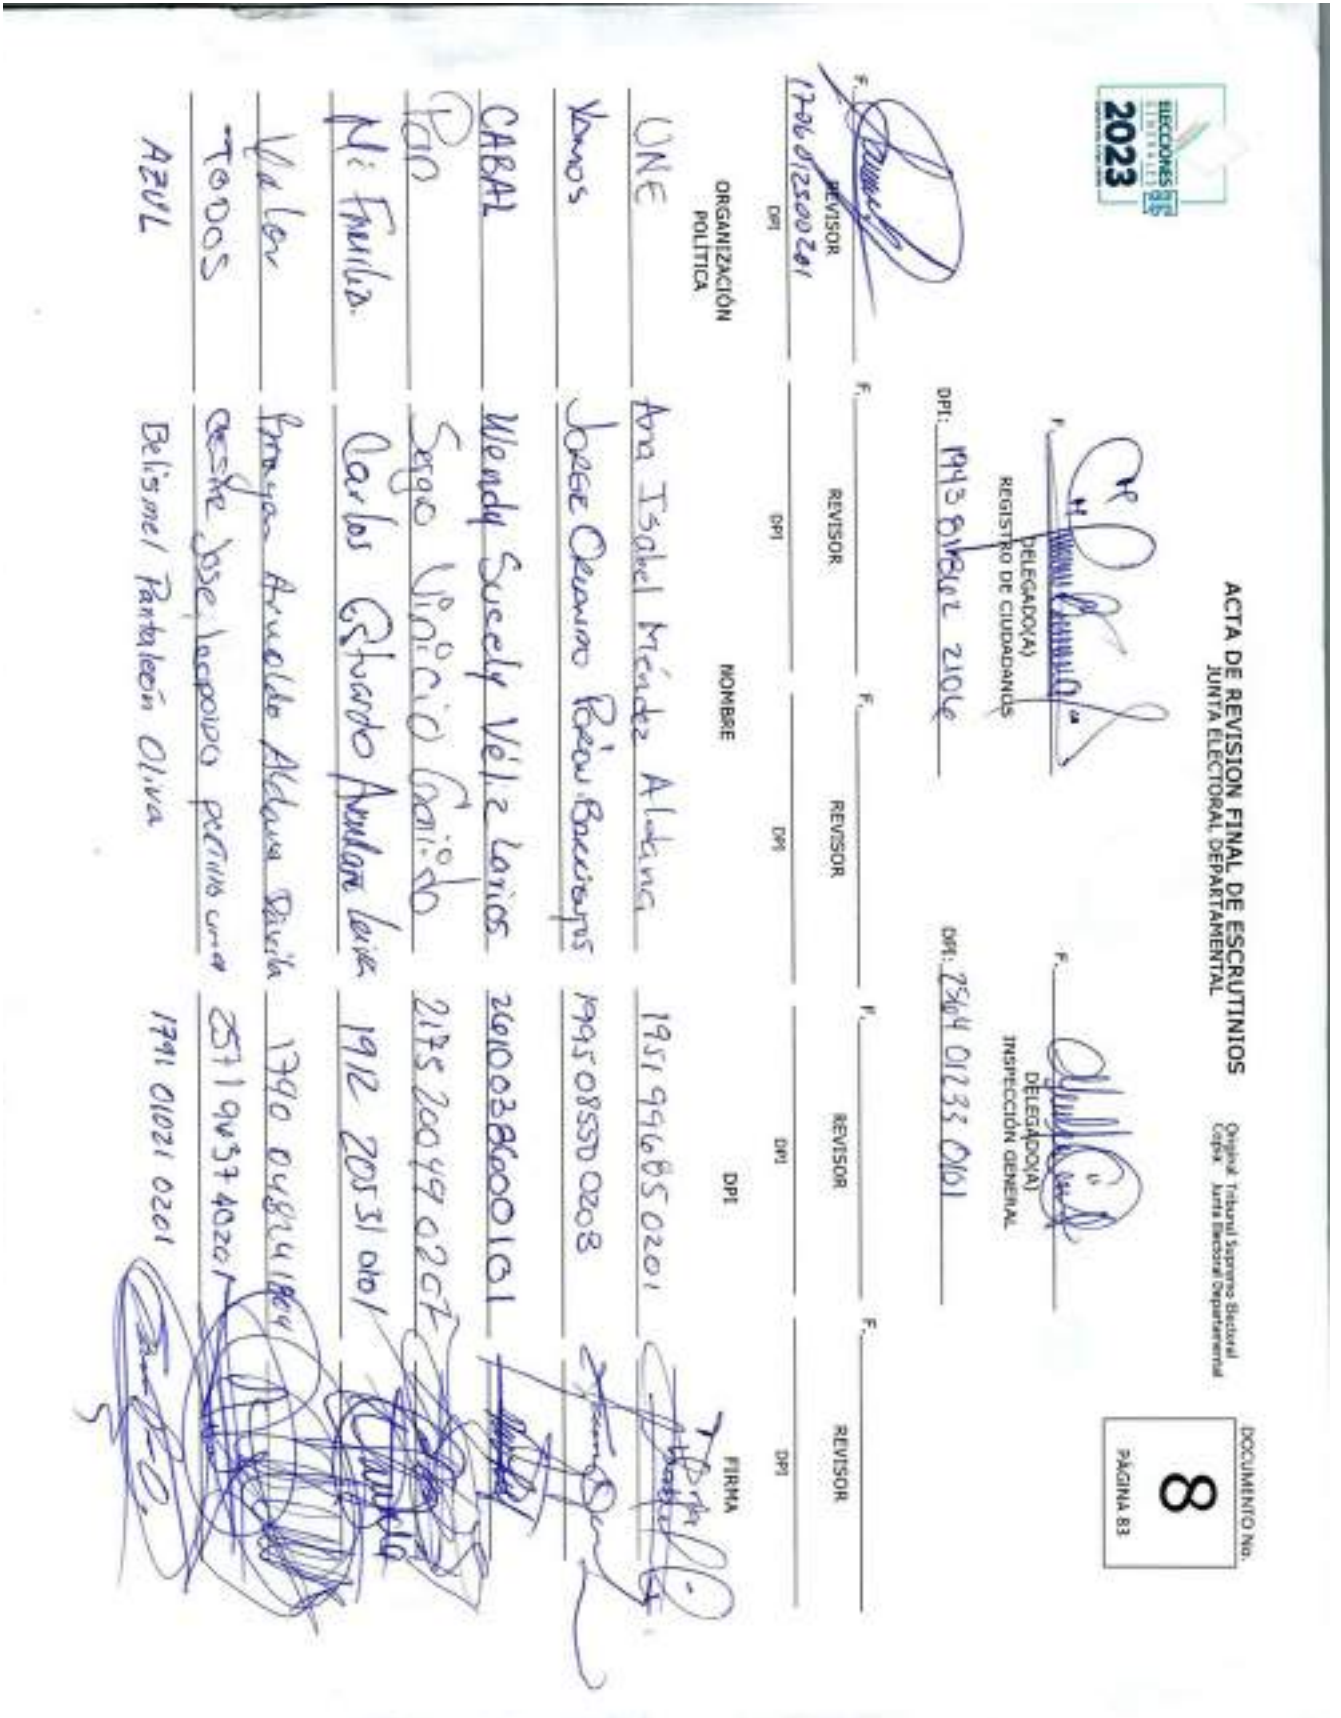 ELECCIONES
GENERALES
2023
ACTA DE REVISION FINAL DE ESCRUTINIOS
JUNTA ELECTORAL DEPARTAMENTAL
Original: Tribunal Supremo Electoral
Copia: Junta Electoral Departamental
DOCUMENTO No.
8
PÁGINA 83
F.
DELEGADO(A)
REGISTRO DE CIUDADANOS
DPI:
F.
DELEGADO(A)
INSPECCIÓN GENERAL
DPI: 2564 01233 0101
F. F. F. F. F.
REVISOR REVISOR REVISOR REVISOR REVISOR
1706012500201
DPI DPI DPI DPI DPI
ORGANIZACIÓN POLÍTICA NOMBRE DPI FIRMA
UNE Ana Isabel Méndez Aldana 1951996850201
Vamos Jorge Orlando Barrientos 1995085500203
CABAL Wendy Sucely Véliz Larios 2610038600101
Sergio Vinicio 2175200490207
Mi Familia. Carlos Estuardo 1912 20531 0101
Valor Brayan Arnoldo Aldana Dávila 1790
TODOS José Leopoldo
AZUL Belismel Pantaleón Oliva 1791 01021 0201